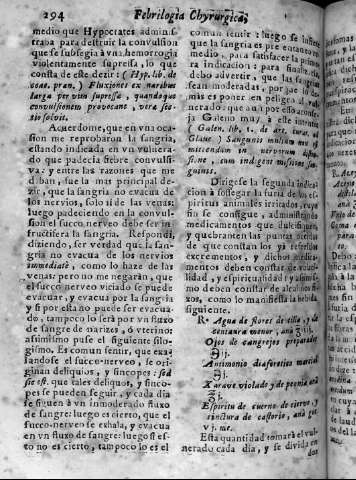 294 Febrilogia Chyrurgica,
medio que Hypocrates adminis-
traba para destruir la convulsion
que se subsegia à vna hemorrogia
violentamente supressa, lo que
consta de este dezir: (Hyp. lib. de
coac. pran.) Fluxiones ex naribus
larga per vim supressa, quandoque
convulsionem provocant, vena sec-
tio solvit.
Acuerdome, que en vna oca-
sion me reprobaron la sangria,
estando indicada en vn vulnera-
do que padecia febre convulsi-
va: y entre las razones que me
daban, fue la mas principal de-
zir, que la sangria no evacua de
los nervios, solo si de las venas:
luego padeciendo en la convul-
sion el succo nerveo debe ser in-
fructifera la sangria. Respondì,
diziendo, ser verdad que la san-
gria no evacua de los nervios
immediatè, como lo haze de las
venas: pero no me negaràn, que
el succo nerveo viciado se puede
evacuar, y evacua por la sangria
y si por esta no puede ser evacua-
do, tampoco lo serà por vn fluxo
de sangre de narizes, ò vterino:
assimismo puse el siguiente silo-
gismo. Es comun sentir, que exa-
landose el succo-nerveo, se ori-
ginan deliquios, y sincopes: sed
sic est, que tales deliquos, y sinco-
pes se pueden seguir, y cada dia
se siguen à vn inmoderado fluxo
de sangre: luego es cierto, que el
succo-nerveo se exhala, y evacua
en vn fluxo de sangre: luego si es-
to no es cierto, tampoco lo es el
comun sentir: luego se infiere
que la sangria es preeminente
medio, para satisfacer la prime-
ra indicacion: para finalizarla
debo advertir, que las sangrias
sean moderadas, por que lo de-
mas es poner en peligro al vul-
nerado: que aun por esso aconse-
ja Galeno muy à este intento
(Galen. lib. 1. de art. curat. ad
Glauc.) Sanguinis multum non est
mittendum in nervorum diste-
sione, cum indigent missione san-
guinis.
Dirigese la segunda indica-
cion à sossegar la furia de los es-
piritus animales irritados, cuyo
fin se consigue, administrando
medicamentos que dulcifiquen,
y quebranten las puntas acidas
de que constan los ya referidos
excrementos, y dichos medica-
mentos deben constar de
lidad, y espiritualidad y
mo deben constar de alcalinos fi-
xos, como lo manifiesta la bebida
siguiente.
R. Agua de flores de tilia, y de
centaura menor, ana ℥iij.
Ojos de cangrejos preparados
℈ij.
Antimonio diaforetico marcial
℈j.
Xarave violado y de peonia ana
℥j.
Espiritu de cuerno de ciervo, y
tinctura de castorio, ana got.
vj. me.
Esta quantidad tomarà el vul-
nerado cada dia, y se divida en
dos